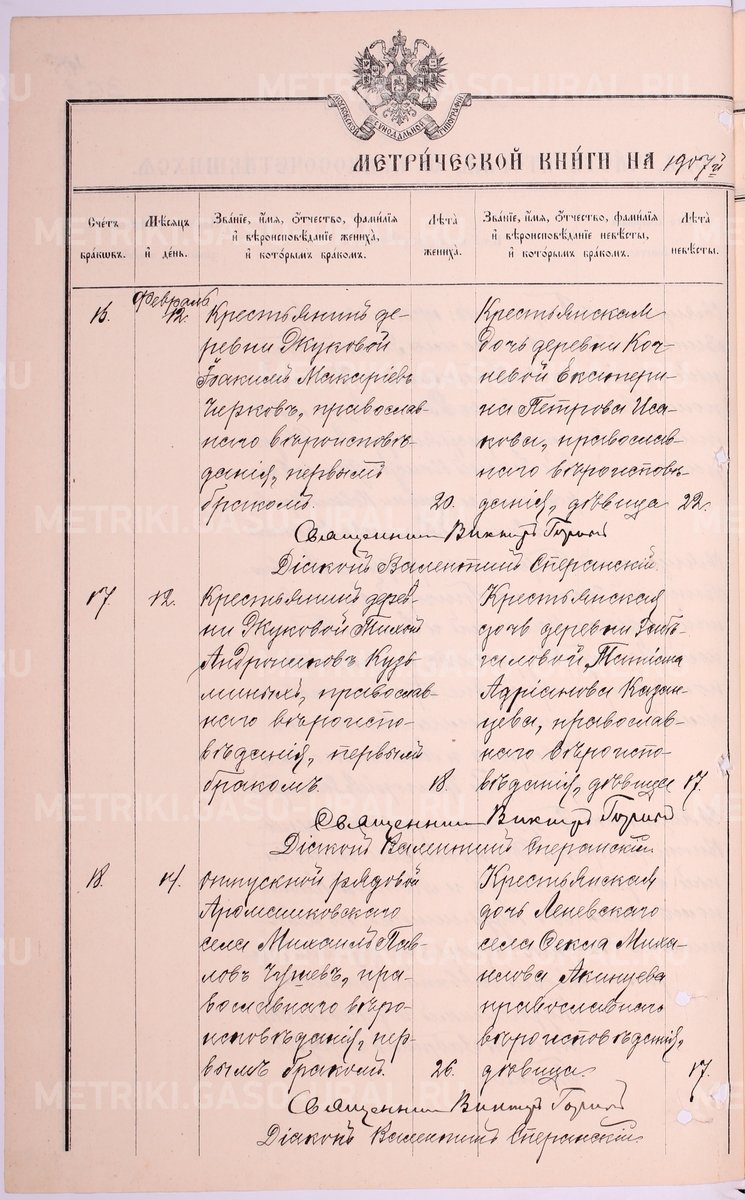 МОСКОВСКОЙ СѴНОДАЛЬНОЙ ТИПОГРАФІИ
МЕТРИЧЕСКОЙ КНИГИ НА 1907й
Счетъ браковъ.
Мѣсяцъ и день.
Званіе, имя, отчество, фамилія и вѣроисповѣданіе жениха, и которымъ бракомъ.
Лѣта жениха.
Званіе, имя, отчество, фамилія и вѣроисповѣданіе невѣсты, и которымъ бракомъ.
Лѣта невѣсты.
Февраль
12.
Крестьянинъ де-
ревни Жуковой
Іоакимъ Макаріевъ
Черковъ, православ-
наго вѣроисповѣ-
данія, первымъ
бракомъ.
20.
Крестьянская
дочь деревни Коч-
невой Екатери-
на Петрова Иса-
кова, православ-
наго вѣроисповѣ-
данія, дѣвица
22.
Священникъ Викторъ
Діаконъ Валентинъ Сперанскій
17.
12.
Крестьянинъ дерев-
ни Жуковой Тихонъ
Андрониковъ Кузь-
миныхъ, православ-
наго вѣроиспо-
вѣданія, первымъ
бракомъ.
18.
Крестьянская
дочь деревни
Татіана
Адріанова Казан-
цева, православ-
наго вѣроиспо-
вѣданія, дѣвица
17.
Священникъ Викторъ
Діаконъ Валентинъ Сперанскій
18.
14.
Отпускной рядовой
Арамашковскаго
села Михаилъ Пав-
ловъ Чушевъ, пра-
вославнаго вѣро-
исповѣданія, пер-
вымъ бракомъ.
26.
Крестьянская
дочь Леневскаго
села Фекла Миха-
илова Акинцева
православнаго
вѣроисповѣданія,
дѣвица
17.
Священникъ Викторъ
Діаконъ Валентинъ Сперанскій
METRIKI.GASO-URAL.RU